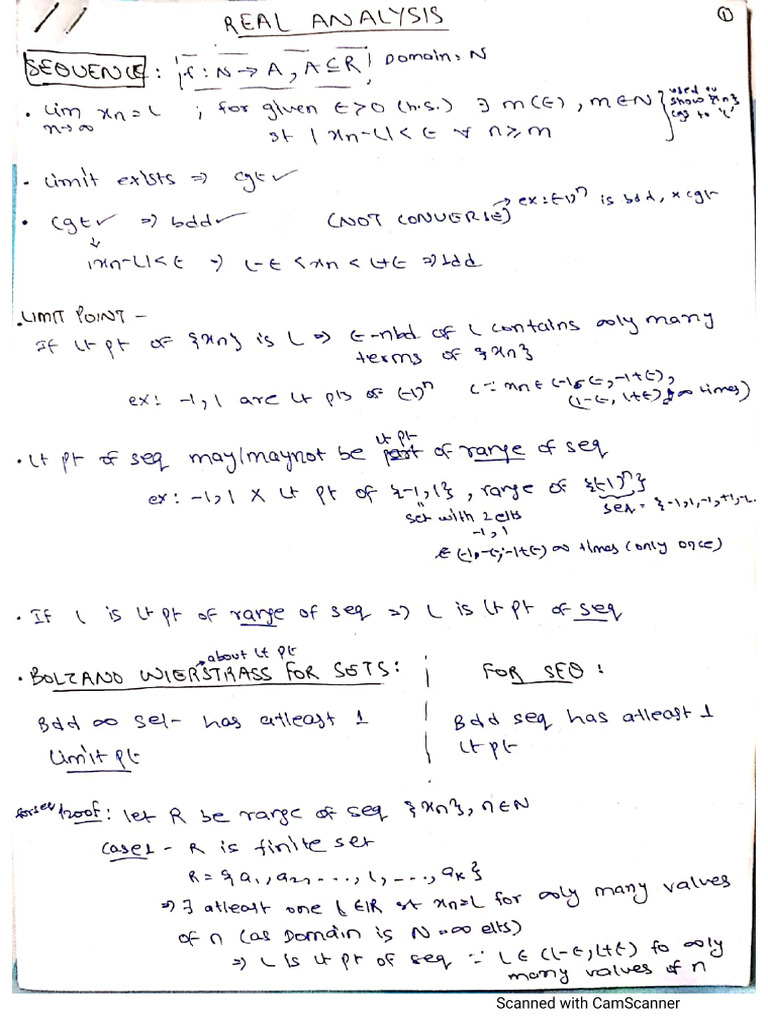 REAL ANALYSIS
①
SEQUENCE : f : N → A, A ⊆ R Domain : N
• lim xn = L ; for given ε>0 (h.s.) ∃ m(ε), m∈N
n→∞
st |xn-L|<ε ∀ n≥m
used to show {xn} cgs to 'L'
- Limit exists ⇒ cgt✓
• cgt✓ ⇒ bdd✓ (NOT CONVERSE) → ex: (-1)ⁿ is bdd, × cgt
↓
|xn-L|<ε ⇒ L-ε < xn < L+ε ⇒ bdd
• LIMIT POINT -
If lt pt of {xn} is L ⇒ ε-nbd of L contains ∞ly many
terms of {xn}
ex: -1, 1 are lt pts of (-1)ⁿ (∵ xn ∈ (-1-ε, -1+ε),
(1-ε, 1+ε) ∞ times)
• lt pt of seq may/maynot be lt pt of range of seq
ex: -1, 1 × lt pt of {-1,1}, range of {(-1)ⁿ}
set with 2 elts
-1, 1
seq = {-1,1,-1,+1,-1..
∈ (-1-ε, -1+ε) ∞ times (only once)
• If L is lt pt of range of seq ⇒ L is lt pt of seq
→ about lt pt
• BOLZANO WIERSTRASS FOR SETS :
FOR SEQ :
Bdd ∞ set - has atleast 1
Limit pt
Bdd seq has atleast 1
lt pt
for seq Proof : let R be range of seq {xn}, n∈N
Case 1 - R is finite set
R = {a₁, a₂, ...., L, -..., aₖ}
⇒ ∃ atleast one L ∈ IR st xn=L for ∞ly many values
of n (as Domain is N = ∞ elts)
⇒ L is lt pt of seq ∵ L ∈ (L-ε, L+ε) fo ∞ly
many values of n
Scanned with CamScanner